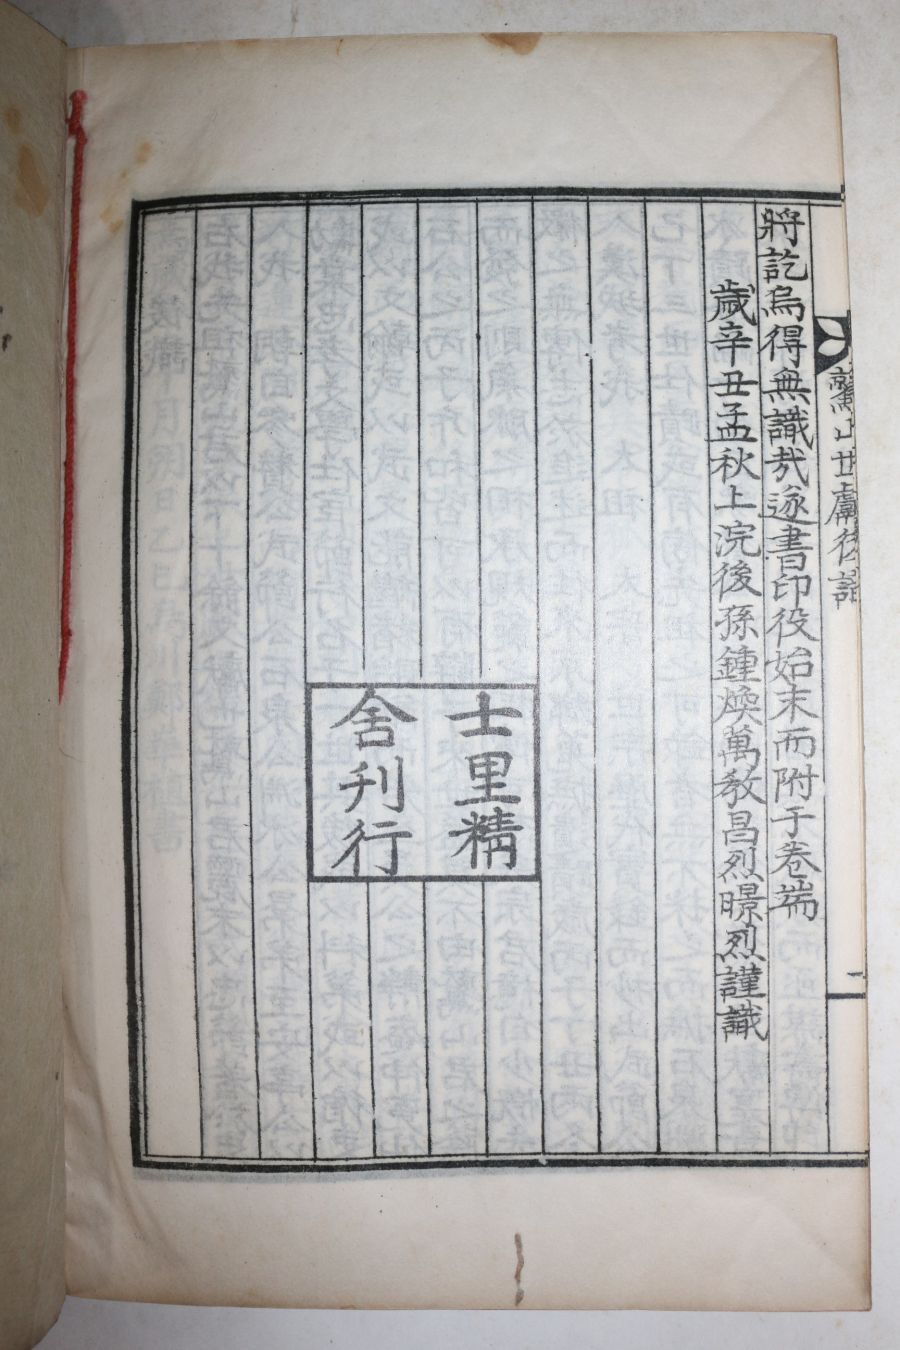 將訖烏得無識哉遂書印役始末而附于卷端
歲辛丑孟秋上浣後孫鍾煥萬敎昌烈暻烈謹識
士里精
舍刊行
鷲山世獻後識
二